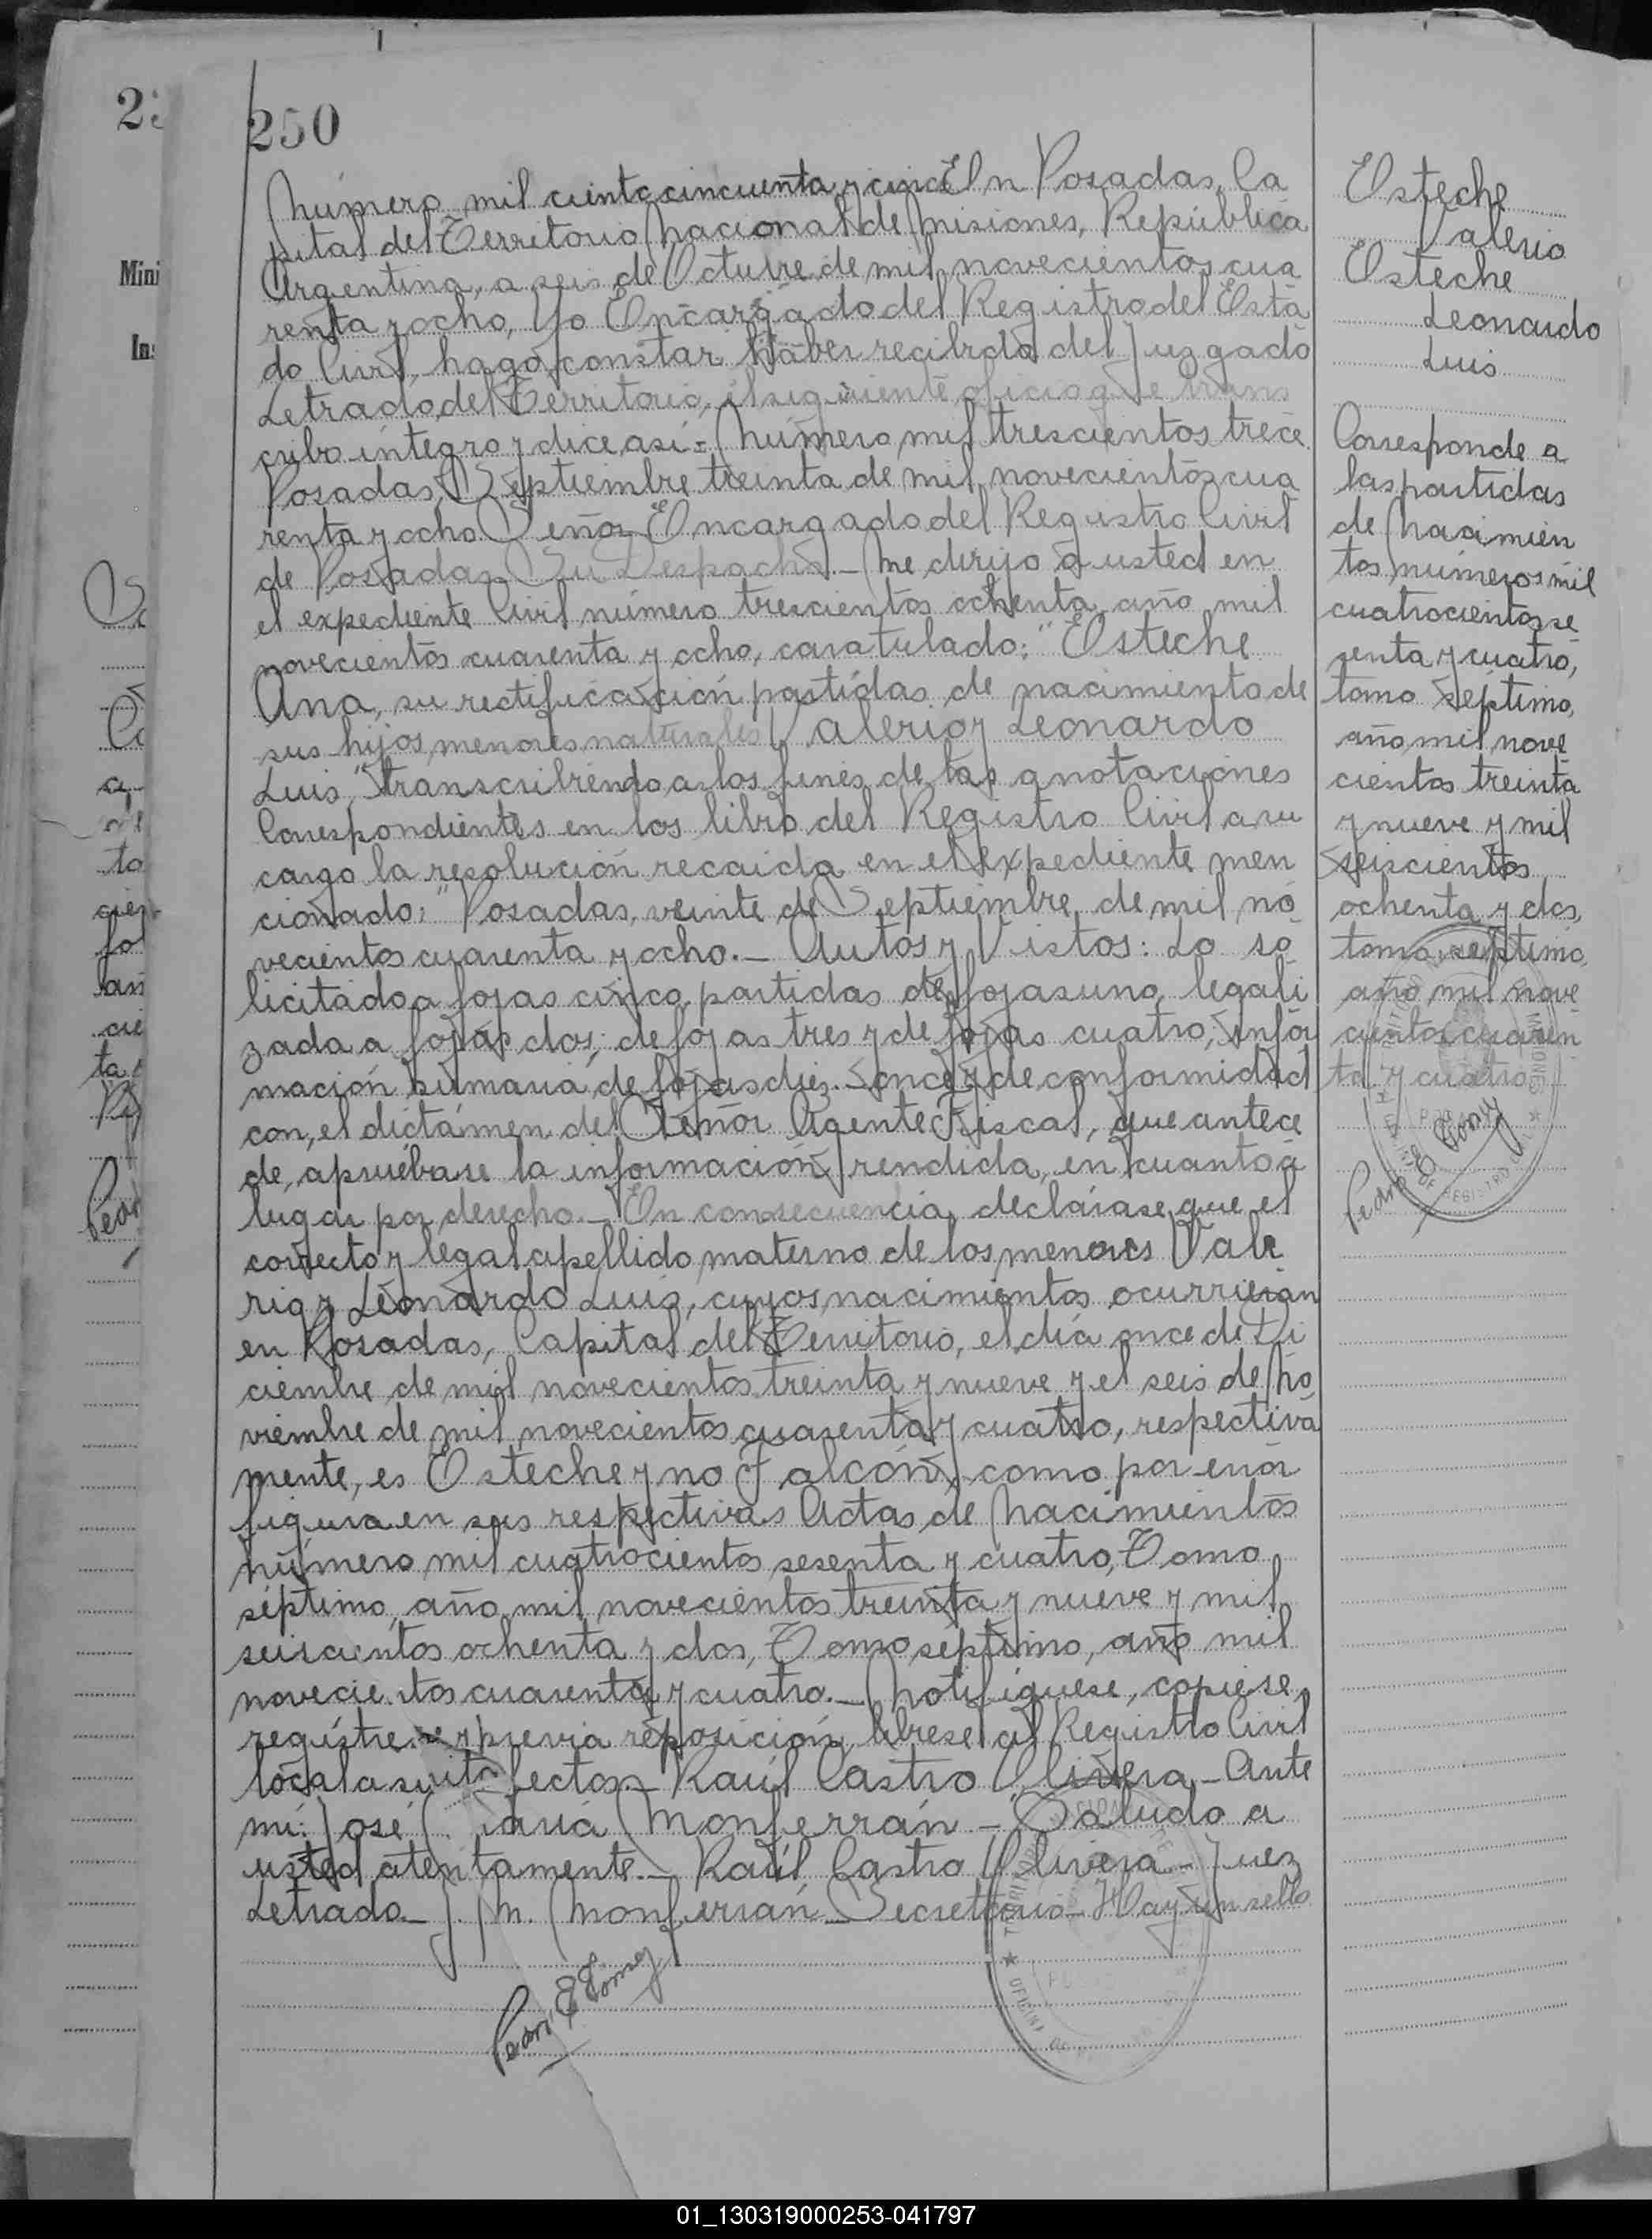 250
Número mil ciento cincuenta y cinco En Posadas, Ca
pital del Territorio Nacional de Misiones, República
Argentina, a seis de Octubre de mil novecientos cua
renta y ocho, Yo Encargado del Registro del Esta
do Civil, hago constar haber recibido del Juzgado
Letrado del Territorio, el siguiente oficio que trans
cribo íntegro y dice así:= Número mil trescientos trece
Posadas, Septiembre treinta de mil novecientos cua
renta y ocho Señor Encargado del Registro Civil
de Posadas Su Despacho.- Me dirijo a usted en
el expediente Civil número trescientos ochenta año mil
novecientos cuarenta y ocho, caratulado: "Esteche
Ana, su rectificación partidas de nacimiento de
sus hijos menores naturales Valerio y Leonardo
Luis" transcribiendo a los fines de las anotaciones
Correspondientes en los libro del Registro Civil a su
cargo la resolución recaida en el expediente men
cionado: "Posadas, veinte de Septiembre de mil no
vecientos cuarenta y ocho.- Autos y Vistos: Lo so
licitado a fojas cinco, partidas de fojas uno, legali
zada a fojas dos; de fojas tres y de fojas cuatro; infor
mación sumaria de fojas diez - once y de conformidad
con, el dictámen del Señor Agente Fiscal, que antece
de, apruébase la información rendida, en cuanto a
lugar por derecho.- En consecuencia, declárase que el
correcto y legal apellido materno de los menores Vale
rio y Leonardo Luis, cuyos nacimientos ocurrieran
en Posadas, Capital del Territorio, el día once de Di
ciembre de mil novecientos treinta y nueve y el seis de No
viembre de mil novecientos cuarenta y cuatro, respectiva
mente, es Esteche y no Falcón, como por error
figura en sus respectivas Actas de Nacimientos
número mil cuatrocientos sesenta y cuatro, Tomo
séptimo, año mil novecientos treinta y nueve y mil
seiscientos ochenta y dos, Tomo séptimo, año mil
novecientos cuarenta y cuatro.- Notifíquese, cópiese,
regístrese y previa reposición, líbrese al Registro Civil
local a sus efectos.- Raúl Castro Olivera - Ante
mí: José María Monferrán - "Saludo a
usted atentamente.- Raúl Castro Olivera - Juez
Letrado.- J. M. Monferrán - Secretario - Hay un sello
Pedro E Gomez
Esteche
Valerio
Esteche
Leonardo
Luis
Corresponde a
las partidas
de Nacimien
tos números mil
cuatrocientos se
senta y cuatro,
tomo séptimo,
año mil nove
cientos treinta
y nueve y mil
seiscientos
ochenta y dos,
tomo séptimo,
año mil nove
cientos cuaren
ta y cuatro
Pedro E Gomez
23
Mini
Ins
01_130319000253-041797